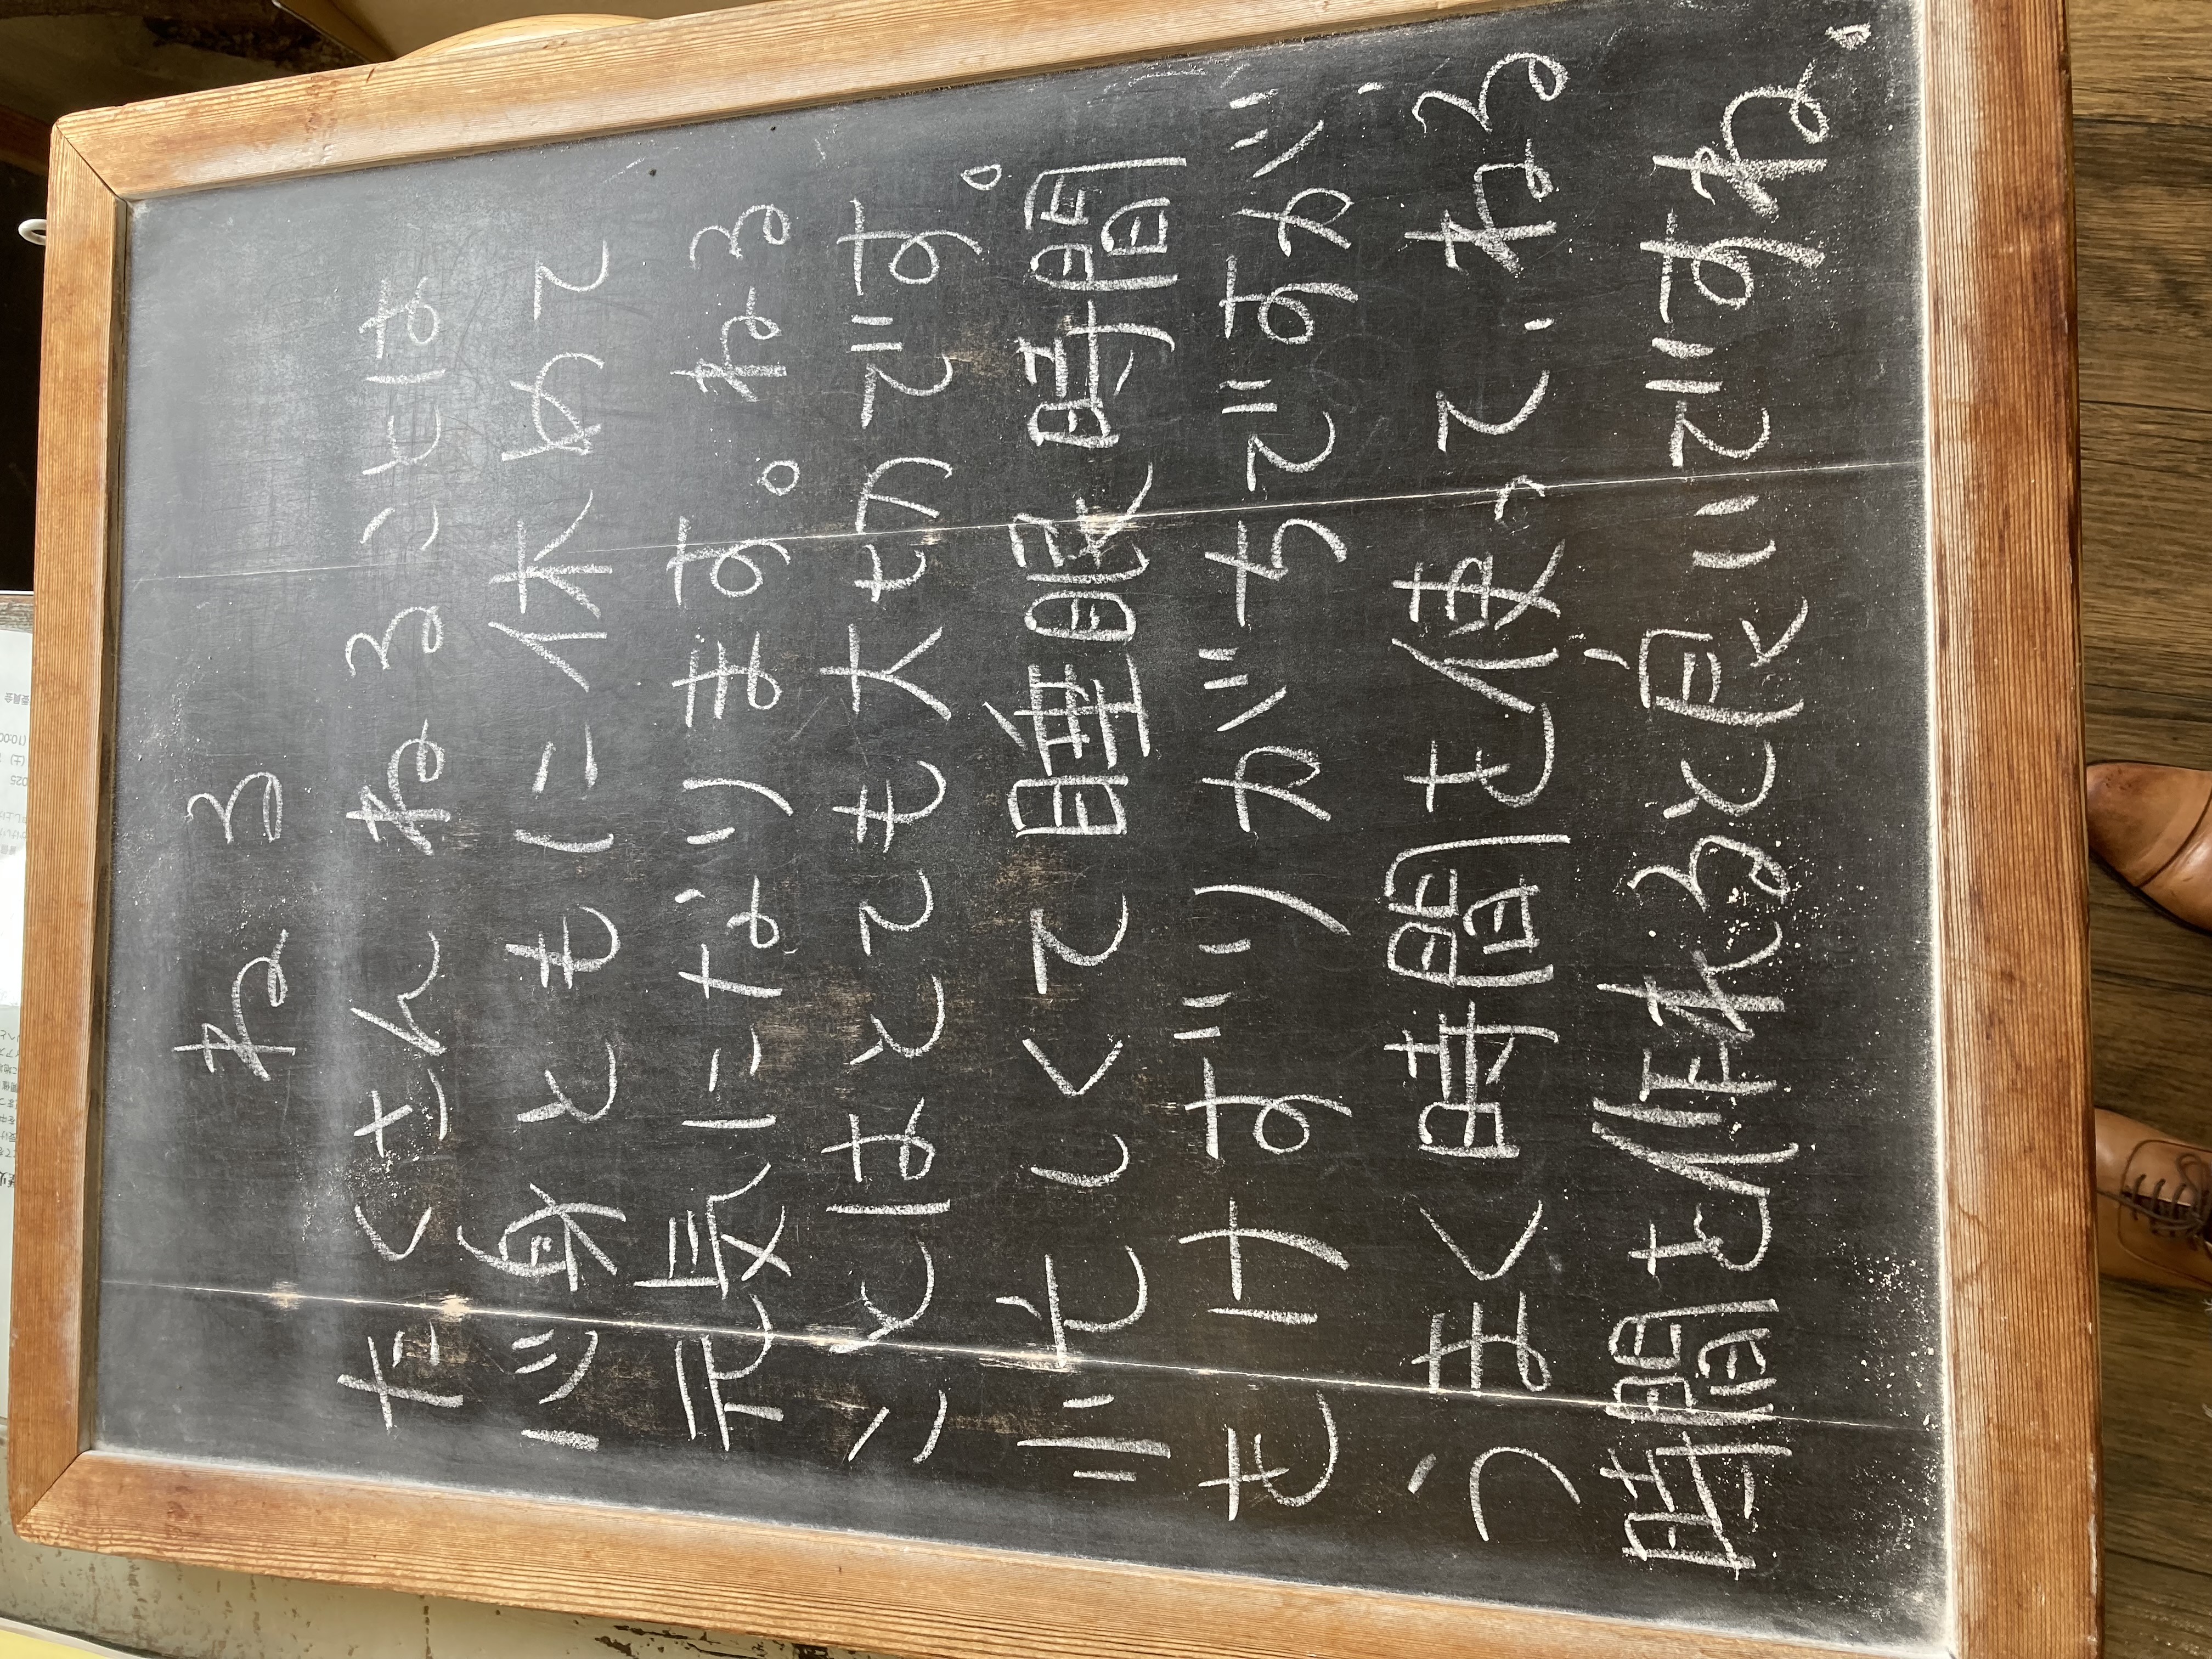 ねる
たくさんねることは
心身ともに休めて
元気になります。ねる
ことはとても大切です。
忙しくて睡眠時間
もけずりがちですが、
うまく時間を使って、ねる
時間を作れると良いですね。